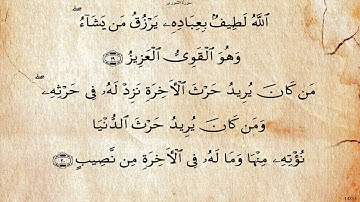 سورة الشورى
ٱللَّهُ لَطِيفٌۢ بِعِبَادِهِۦ يَرْزُقُ مَن يَشَآءُ ۖ
وَهُوَ ٱلْقَوِىُّ ٱلْعَزِيزُ ١٩
مَن كَانَ يُرِيدُ حَرْثَ ٱلْـَٔاخِرَةِ نَزِدْ لَهُۥ فِى حَرْثِهِۦ ۖ
وَمَن كَانَ يُرِيدُ حَرْثَ ٱلدُّنْيَا
نُؤْتِهِۦ مِنْهَا وَمَا لَهُۥ فِى ٱلْـَٔاخِرَةِ مِن نَّصِيبٍ ٢٠